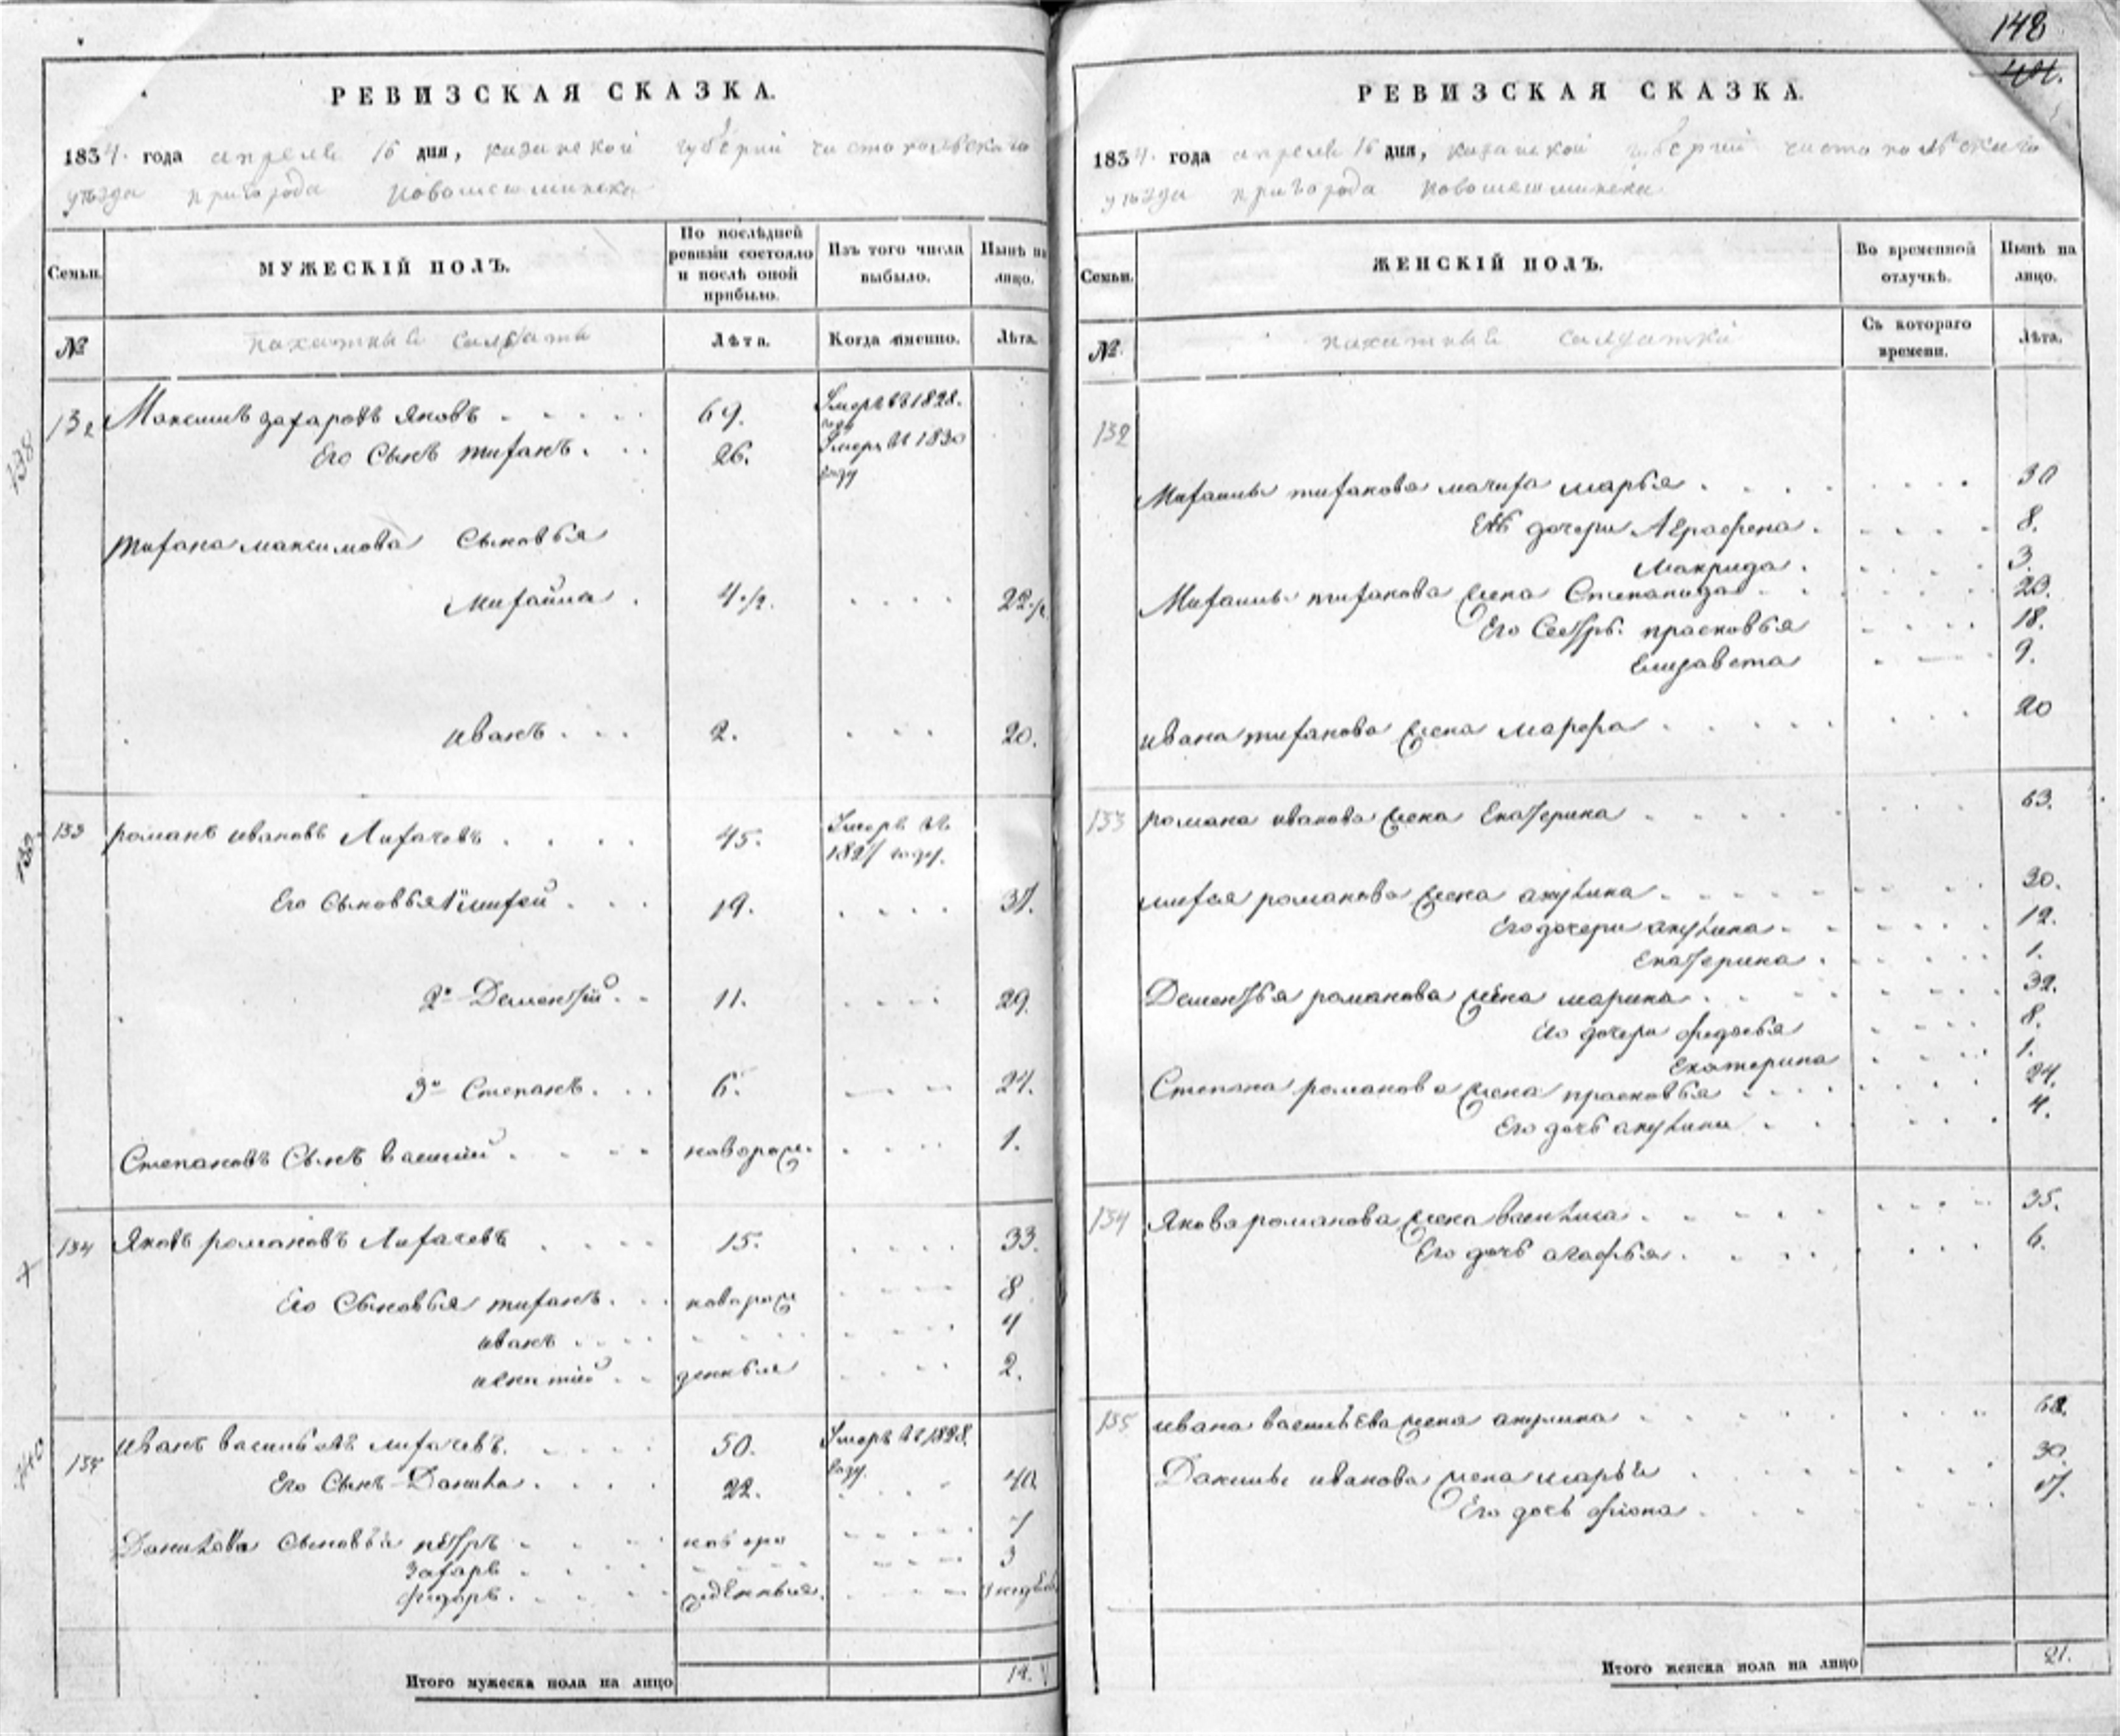 РЕВИЗСКАЯ СКАЗКА.
1834. года апреля 16 дня, казанской губернии чистопольскаго
уѣзда пригорода Новошешминска
Семьи.
МУЖЕСКІЙ ПОЛЪ.
По послѣдней ревизіи состояло и послѣ оной прибыло.
Изъ того числа выбыло.
Нынѣ на лицо.
№
пахатныя солдаты
Лѣта.
Когда именно.
Лѣта.
138
132 Максимъ захаровъ Яковъ 69. Умеръ въ 1828. году
Его Сынъ тиханъ. 26. Умеръ въ 1830 году
тихана максимова Сыновья
Михайла 4 1/2. 22 1/2
иванъ 2. 20.
133 романъ ивановъ Лихачевъ 45. Умеръ въ 1827 году.
Его Сыновья 1й михей 19. 37.
2й Дементій 11. 29.
3й Степанъ. 6. 24.
Степановъ Сынъ василий новорож. 1.
134 Яковъ романовъ Лихачевъ 15. 33.
Его Сыновья тиханъ. новорож 8
иванъ 4
игнатий денныя 2.
140
135 иванъ васильевъ лихачевъ. 50. Умеръ въ 1828. году.
Его Сынъ Данила 22. 40.
Данилова Сыновья пётръ новоро 7
Захаръ 3
федоръ. жденныя. 3 недел
Итого мужеска пола на лицо 14.
148
РЕВИЗСКАЯ СКАЗКА.
1834. года апреля 16 дня, казанской губернии чистопольскаго
уѣзда пригорода Новошешминска
Семьи.
ЖЕНСКІЙ ПОЛЪ.
Во временной отлучкѣ.
Нынѣ на лицо.
№.
пахатныя солдатки
Съ котораго времени.
Лѣта.
132
Михаилы тиханова мачиха марья 30
Её дочери Аграфена 8.
Макрида. 3.
Михаилы тиханова жена Степанида 23.
Его Сестры. прасковья 18.
Елизавета 9.
ивана тиханова жена марфа 20
133 романа иванова жена Екатерина 63.
михея романова жена акулина 30.
Его дочери акулина 12.
Екатерина 1.
Дементья романова жена марина 32.
Его дочери федосья 8.
Екатерина 1.
Степана романова жена прасковья 24.
Его дочь акулина 4.
134 Якова романова жена василиса 35.
Его дочь агафья. 6.
135 ивана васильева жена акулина 68.
Данилы иванова жена марья 30.
Его дочь фіона 17.
Итого женска пола на лицо 21.